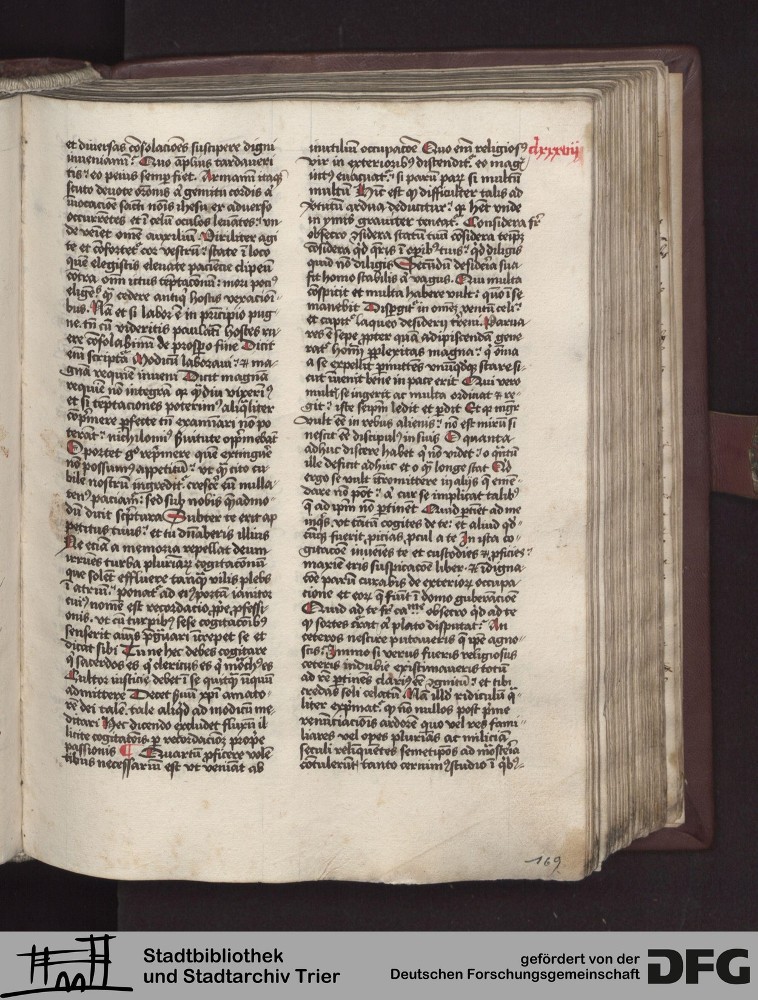 et diuersas cōsolacioēs suscipere digni
inueniami᷑ Quo aplius tardaueri
tis eo peius semp fiet. Armami itaqꝫ
scuto deuote orōnis a gemitu cordis a
īuocacioē sacti nōis ihesu er aduerso
occurrētes et ī celū oculos leuātes vn
de veiet omē auxiliū Viriliter agi
te et cōfortet᷑ cor vestrū state ī loco
quē elegistis eleuate paciēcie clipeū
cōtra omī ictus tēptacōnū mori poci᷒
elige᷒ qͣ cedere antiqͥ hostis
bus. Nā et si labor ē in pricipio pug
ne. tn̄ cū videritis paulatī hostes
ere cōsolabimī de prospō fine Dicit
enī scriptͣ Modicū laboraui ⁊ ma
gnā requiē inueni Dicit magnā
requiē nō integrā qꝛ qͣdiu vixeri᷒
et si tēptaciones poterim᷒ aliqͣliter
cōpͥmere pfecte tn̄ nō po
terāt nichilomi᷒ oppͥmebāt
Oportet gͦ repͥmere quē extinguē
nō possum᷒ appetitū vt qͣ cito cu
bile nostrū ingredit᷑ cresce eū nulla
ten᷒ paciam᷑ sed sub nobis qͣadmo
dū dicit scptura Subter te erit ap
petitus tuus et tu dn̄aberis illius
Ne etiā a memoria repellat deum
irruēs turba pluriaꝝ cogitacōnū
que solēt effluere tanqͣ vilis plebs
ī atriū ponat᷑ ad ei᷒ portā ianitor
cui᷒ nomē est recordacio ppe pfessi
onis. vt cū turpib᷒ sese cogitacōib᷒
senserit aīus pgͣuari īcrepet se et
dicat sibi Tu ne hec debes cogitare
qͥ sacerdos es qͥ clericus es qͥ moch᷒ es
Cultor iusticie debet ī se quicqͣ iniquū
admittere Decet suū xpī amato
rē dei talē. tale aliqͥd ad modicū me
ditari Hec dicendo excludet fluxū il
licite cogitatōis p recordacioꝫ proprie
passionis ¶ Quartū pficere volē
tibus necessariū est vt veniāt ab
inutiliū occupacōe Quo em̄ religios᷒
vir in exterioribꝫ distendit᷑. eo magꝭ
int᷒ euacuat᷑ si parū parū si multū
multū Hic est qͥ difficulter talis ad
v̓tutū ardua deducitur qꝛ hēt vnde
in ymis grauiter teneat᷑. Considera fr̄
obsecro ꝯsidera statū tuū cōsidera teipm
cōsidera qͥd qris ī opibꝫ tuis qͥd diligis
quid nō diligis Secūdū desideria sua
fit homo stabilis a vagus. Qui multa
cōspicit et multa habere vult quō ī se
manebit Dispgit᷑ in omēꝫ ventū celi
et capit᷑ laqueo desiderij terreni. Parua
res ē sepe ppter quā adipiscendā gene
rat᷑ homī pplexitas magna qͥ oīna
a se expellit pmittēs vnūqͣdqꝫ stare si
cut inueit bene in pace erit Qui vero
multꝭ se ingerit ac multa ordinat ⁊ re
git iste seipm ledit et pdit Et qͥ mgr
vult ēē in rebus alienis nō est mirū si
nescit ēē discipul᷒ in suis O quanta
adhuc discere habet qͥ nō videt o qͣntū
ille deficit adhuc et o qͣ longe stat Qd
ergo se vult ītromittere in alijs qͥ emē
dare nō pōt a cur se implicat talibꝫ
q̄ ad ipm nō ptinēt Quid ptiet ad me
inqͥs. vt tātū cogites de te et aliud qͥd
cūqꝫ fuerit picias pcul a te In ista co
gitacōe inueies te et custodies ⁊ pficies
maxiē eris suspicacōe liber ⁊ īdigna
cōe parū curabis de exterioꝝ occupa
cione et eoꝝ q̄ fiūt ī domo gubernacioe
Quid ad te fr̄ cāme obsecro qͥd ad te
qͥ sortes erat a plato disputat An
ceteros nescire putaueris qͣ ipē agno
scis Immo si verus fueris religiosus
ceteris indubie existimaueris totū
ad rē ptinēs clari᷒ ēē ꝯgnitū et tibi
credas soli celatū Nā illd ridiculū qͣ
liter expmat᷑. qͥ nō nullos post pͥme
renunciaciōis ardorē quo vel res fami
liares vel opes plurias ac miliciā
seculi relinquētes semetipos ad mōsteria
cōtulerūt tanto cernim᷒ studio ī qͥbꝫ
clxxxviij
169
Stadtbibliothek
und Stadtarchiv Trier
gefördert von der
Deutschen Forschungsgemeinschaft
DFG